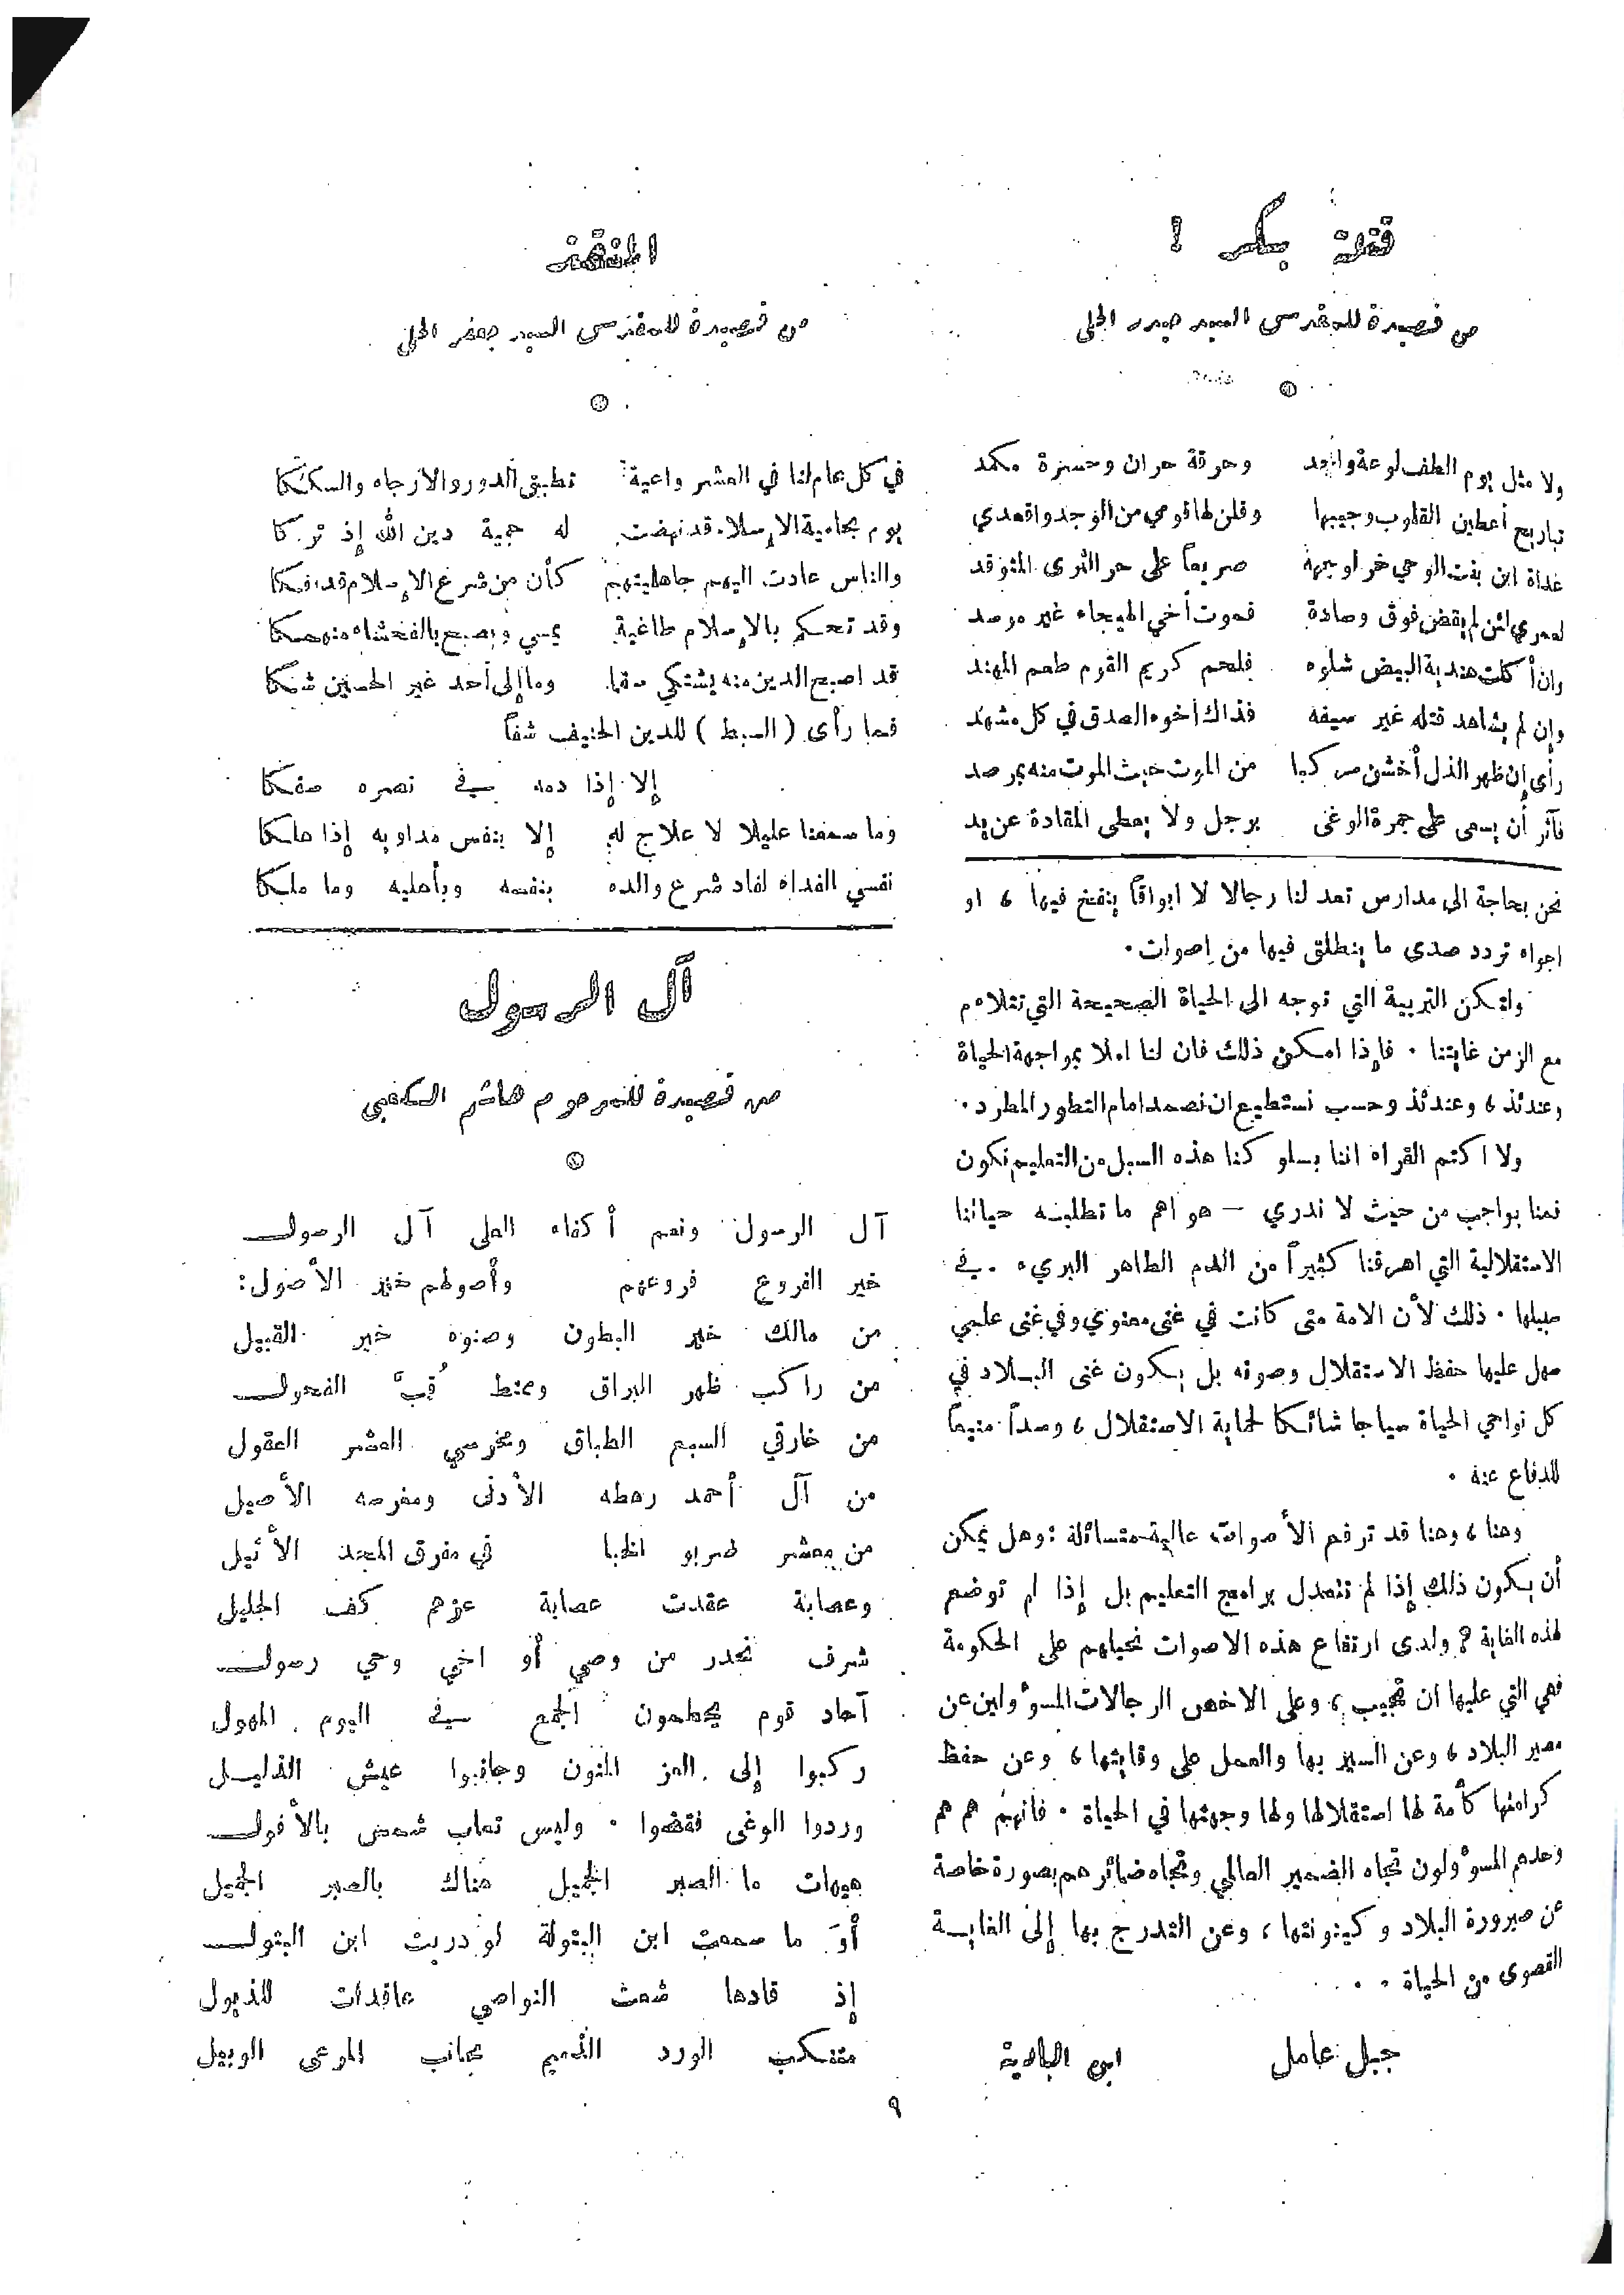 قتلة بكر !
من قصيدة للمقدس السيد حيدر الحلي
ولا مثل يوم الطف لوعة واجد وحرقة حران وحسرة مكمد
تباريح أعطين القلوب وجيبها وقلن لها قومي من الوجد واقعدي
غداة ابن بنت الوحي خر لوجهه صريعاً على حر الثرى المتوقد
لعمري لئن لم يقض فوق وسادة فموت أخي الهيجاء غير موسد
وان أكلت هندية البيض شلوه فلحم كريم القوم طعم المهند
وإن لم يشاهد قتله غير سيفه فذاك أخوه الصدق في كل مشهد
رأى إن ظهر الذل أخشن مركبا من الموت حيث الموت منه بمرصد
فآثر أن يسعى على جمرة الوغى برجل ولا يعطي المقادة عن يد
نحن بحاجة الى مدارس تعد لنا رجالا لا ابواقاً ينفخ فيها ، او
اجواء تردد صدى ما ينطلق فيها من اصوات .
ولتكن التربية التي توجه الى الحياة الصحيحة التي تتلاءم
مع الزمن غايتنا . فإذا امكن ذلك فان لنا املا بمواجهة الحياة
وعندئذ ، وعندئذ وحسب نستطيع ان نصمد امام التطور المطرد .
ولا اكتم القراء اننا بسلوكنا هذه السبل من التعليم نكون
قمنا بواجب من حيث لا ندري — هو اهم ما تطلبه حياتنا
الاستقلالية التي اهرقنا كثيراً من الدم الطاهر البريء . في
سبيلها . ذلك لأن الامة متى كانت في غنى معنوي وفي غنى علمي
سهل عليها حفظ الاستقلال وصونه بل يكون غنى البلاد في
كل نواحي الحياة سياجا شائكا لحماية الاستقلال ، وسداً منيعاً
للدفاع عنه .
وهنا ، وهنا قد ترفع الأصوات عالية متسائلة : وهل يمكن
أن يكون ذلك إذا لم تتعدل برامج التعليم بل إذا لم توضع
لهذه الغاية ؟ ولدى ارتفاع هذه الاصوات نحيلهم على الحكومة
فهي التي عليها ان تجيب ، وعلى الاخص الرجالات المسؤولين عن
مصير البلاد ، وعن السير بها والعمل على وقايتها ، وعن حفظ
كرامتها كأمة لها استقلالها ولها وجهتها في الحياة . فانهم هم هم
وحدهم المسؤولون تجاه الضمير العالمي وتجاه ضمائرهم بصورة خاصة
عن صيرورة البلاد وكينونتها ، وعن التدرج بها إلى الغاية
القصوى من الحياة . . .
جبل عامل ابن البادية
المنقذ
من قصيدة للمقدس السيد جعفر الحلي
في كل عام لنا في العشر واعية تطبق الدور والارجاء والسككا
يوم بحامية الإسلام قد نهضت له حمية دين الله إذ تركا
والناس عادت اليهم جاهليتهم كأن من شرع الإسلام قد افكا
وقد تحكم بالإسلام طاغية يمسي ويصبح بالفحشاء منهمكا
قد اصبح الدين منه يشتكي سقما وما إلى أحد غير الحسين شكا
فما رأى ( السبط ) للدين الحنيف شفاً
إلا إذا دمه في نصره سفكا
وما سمعنا عليلا لا علاج له إلا بنفس مداويه إذا هلكا
نفسي الفداء لفاد شرع والده بنفسه وبأهليه وما ملكا
آل الرسول
من قصيدة للمرحوم هاشم الكعبي
آل الرسول ونعم أكفاء العلى آل الرسول
خير الفروع فروعهم وأصولهم خير الأصول :
من مالك خير البطون وصنوه خير القبيل
من راكب ظهر البراق وممتط قبّ الفحول
من خارقي السبع الطباق ومخرسي العشر العقول
من آل أحمد رهطه الأدنى ومغرسه الأصيل
من معشر ضربو الخبا في مفرق المجد الأثيل
وعصابة عقدت عصابة عزهم كف الجليل
شرف تحدر من وصي أو اخي وحي رسول
آحاد قوم يحطمون الجمع في اليوم المهول
ركبوا إلى العز المنون وجانبوا عيش الذليل
وردوا الوغى فقضوا . وليس تعاب شمس بالأفول
هيهات ما الصبر الجميل هناك بالصبر الجميل
أوَ ما سمعت ابن البتولة لو دريت ابن البتول
إذ قادها شعث النواصي عاقدات للذيول
متنكب الورد الذميم مجانب المرعى الوبيل
٩